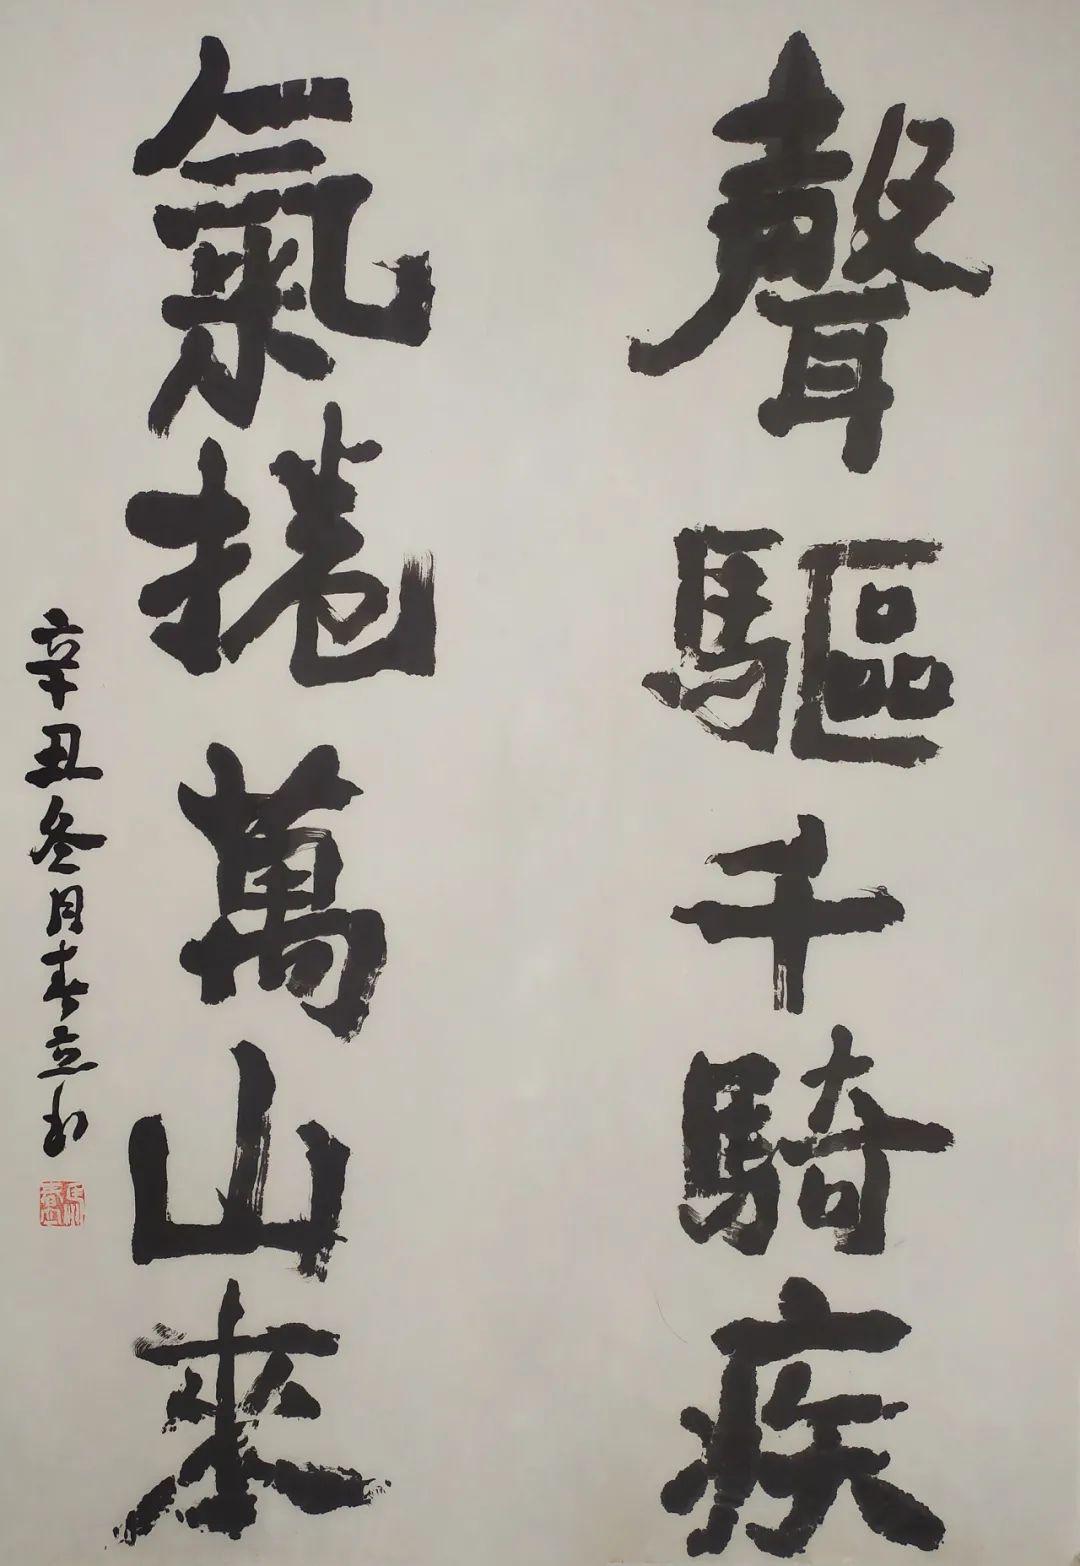 聲驅千騎疾
氣捲萬山來
辛丑冬月春立